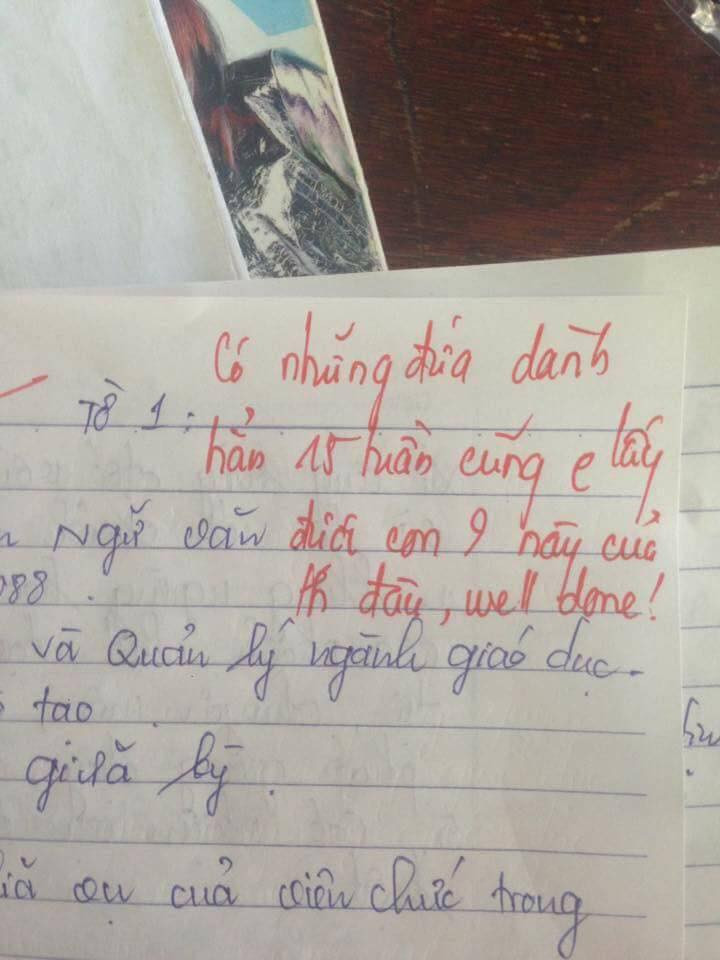 Có những đứa danh
Tổ 1:
hẳn 15 tuần cũng e lấy
Ngữ văn được con 9 này của
088.
th đâu, well done!
và Quản lý ngành giáo dục.
tạo
giữa kỳ.
vụ của viên chức trong